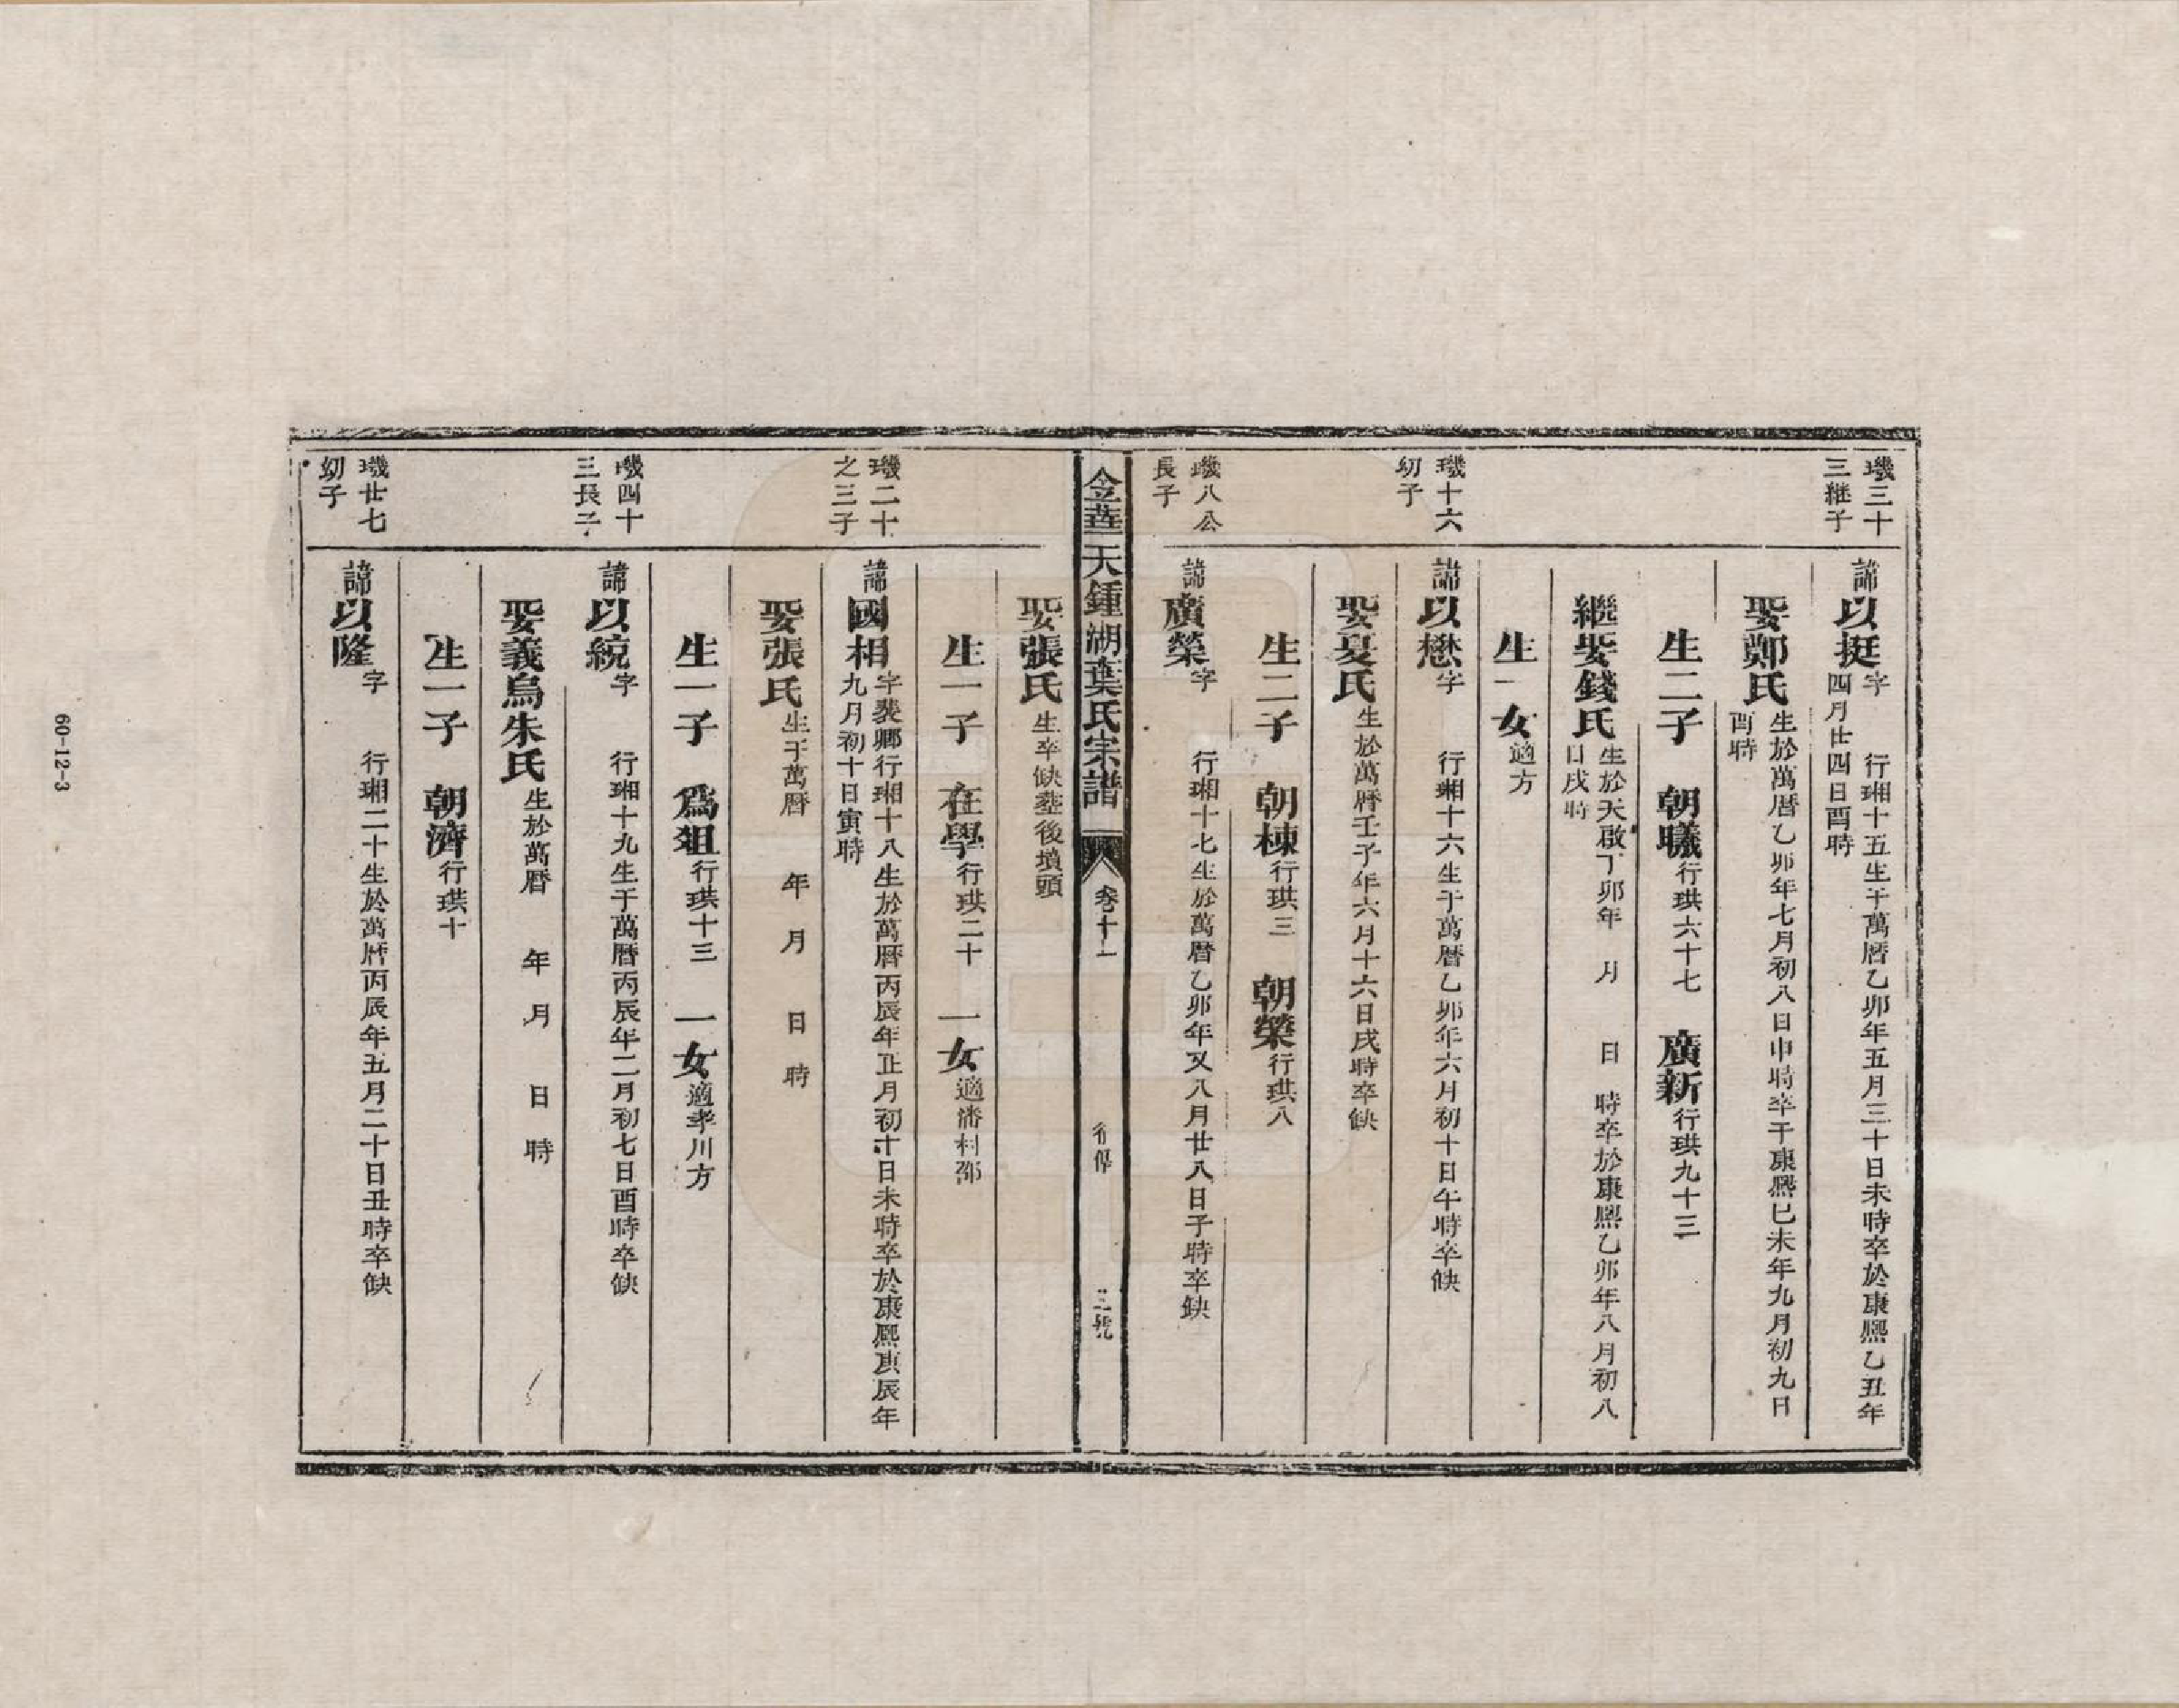 璣三十
三繼子
諱以挺字　行瑚十五生于萬曆乙卯年五月三十日未時卒於康熙乙丑年
四月廿四日酉時
娶鄭氏生於萬曆乙卯年七月初八日申時卒于康熙己未年九月初九日
酉時
生二子　朝曦行珙六十七　廣新行珙九十三
繼娶錢氏生於天啟丁卯年　月　日　時卒於康熙乙卯年八月初八
日戌時
生一女適方
璣十六
幼子
諱以懋字　行瑚十六生于萬曆乙卯年六月初十日午時卒缺
娶夏氏生於萬曆壬子年六月十六日戌時卒缺
生二子　朝棟行珙三　朝榮行珙八
璣八公
長子
諱廣榮字　行瑚十七生於萬曆乙卯年又八月廿八日子時卒缺
金華天鍾湖葉氏宗譜　卷十一　行傳　三號
娶張氏生卒缺塟後墳頭
生一子　在學行珙二十　一女適潘村邵
璣二十
之三子
諱國相字裴卿行瑚十八生於萬曆丙辰年正月初十日未時卒於康熙庚辰年
九月初十日寅時
娶張氏生于萬曆　年　月　日　時
生一子　為爼行珙十三　一女適孝川方
璣四十
三長子
諱以統字　行瑚十九生于萬曆丙辰年二月初七日酉時卒缺
娶義烏朱氏生於萬曆　年　月　日　時
生一子　朝濟行珙十
璣廿七
幼子
諱以隆字　行瑚二十生於萬曆丙辰年五月二十日丑時卒缺
60-12-3